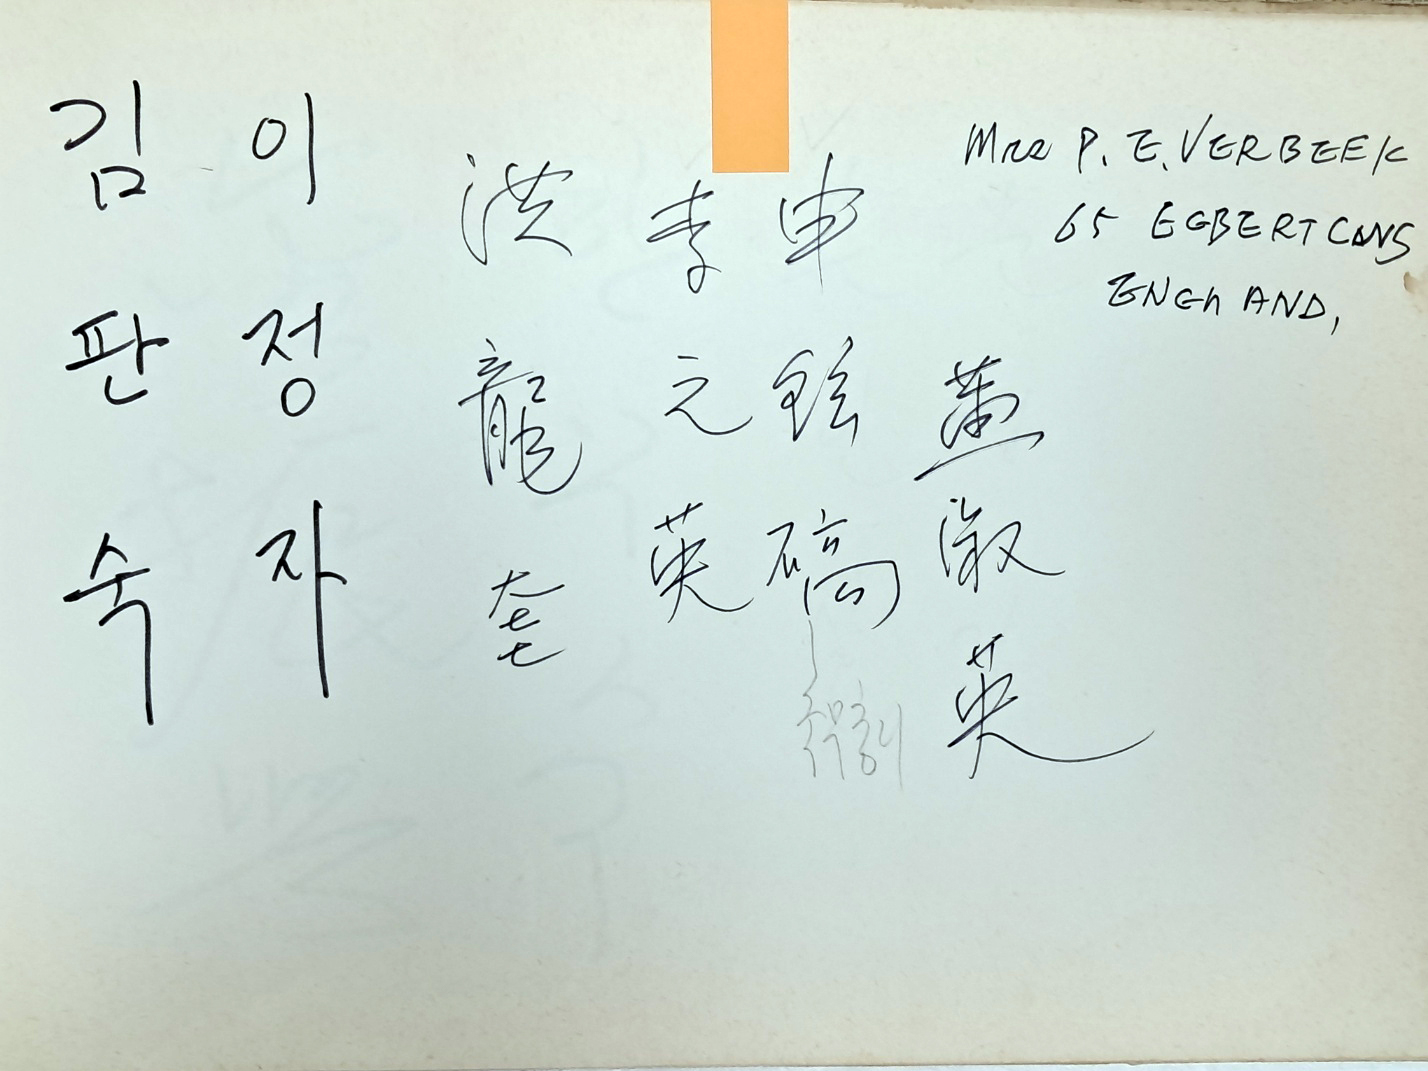 Mrs P. E. VERBEEK
65 EGBERT CANS
ENGLAND,
淑英
申鉉碻
李元英
洪龍
이정자
김판숙